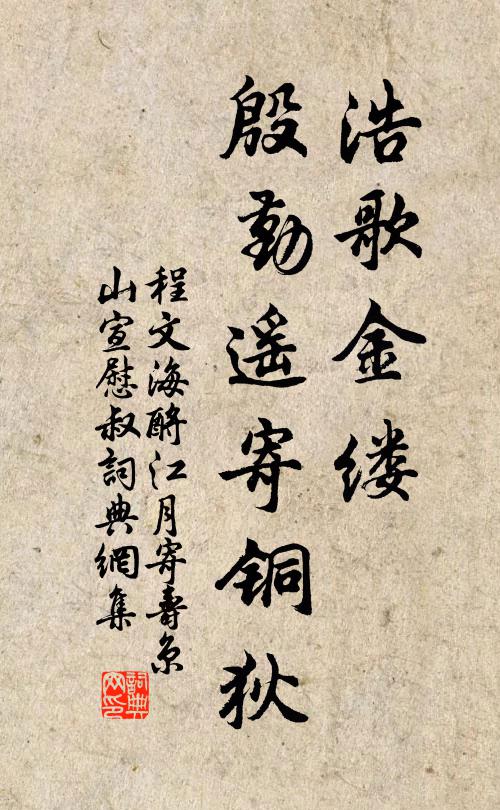 浩歌金缕
殷勤遥寄铜狄
程文海酹江月寄壽京
山宣慰叔詞典網集
詞典
网印